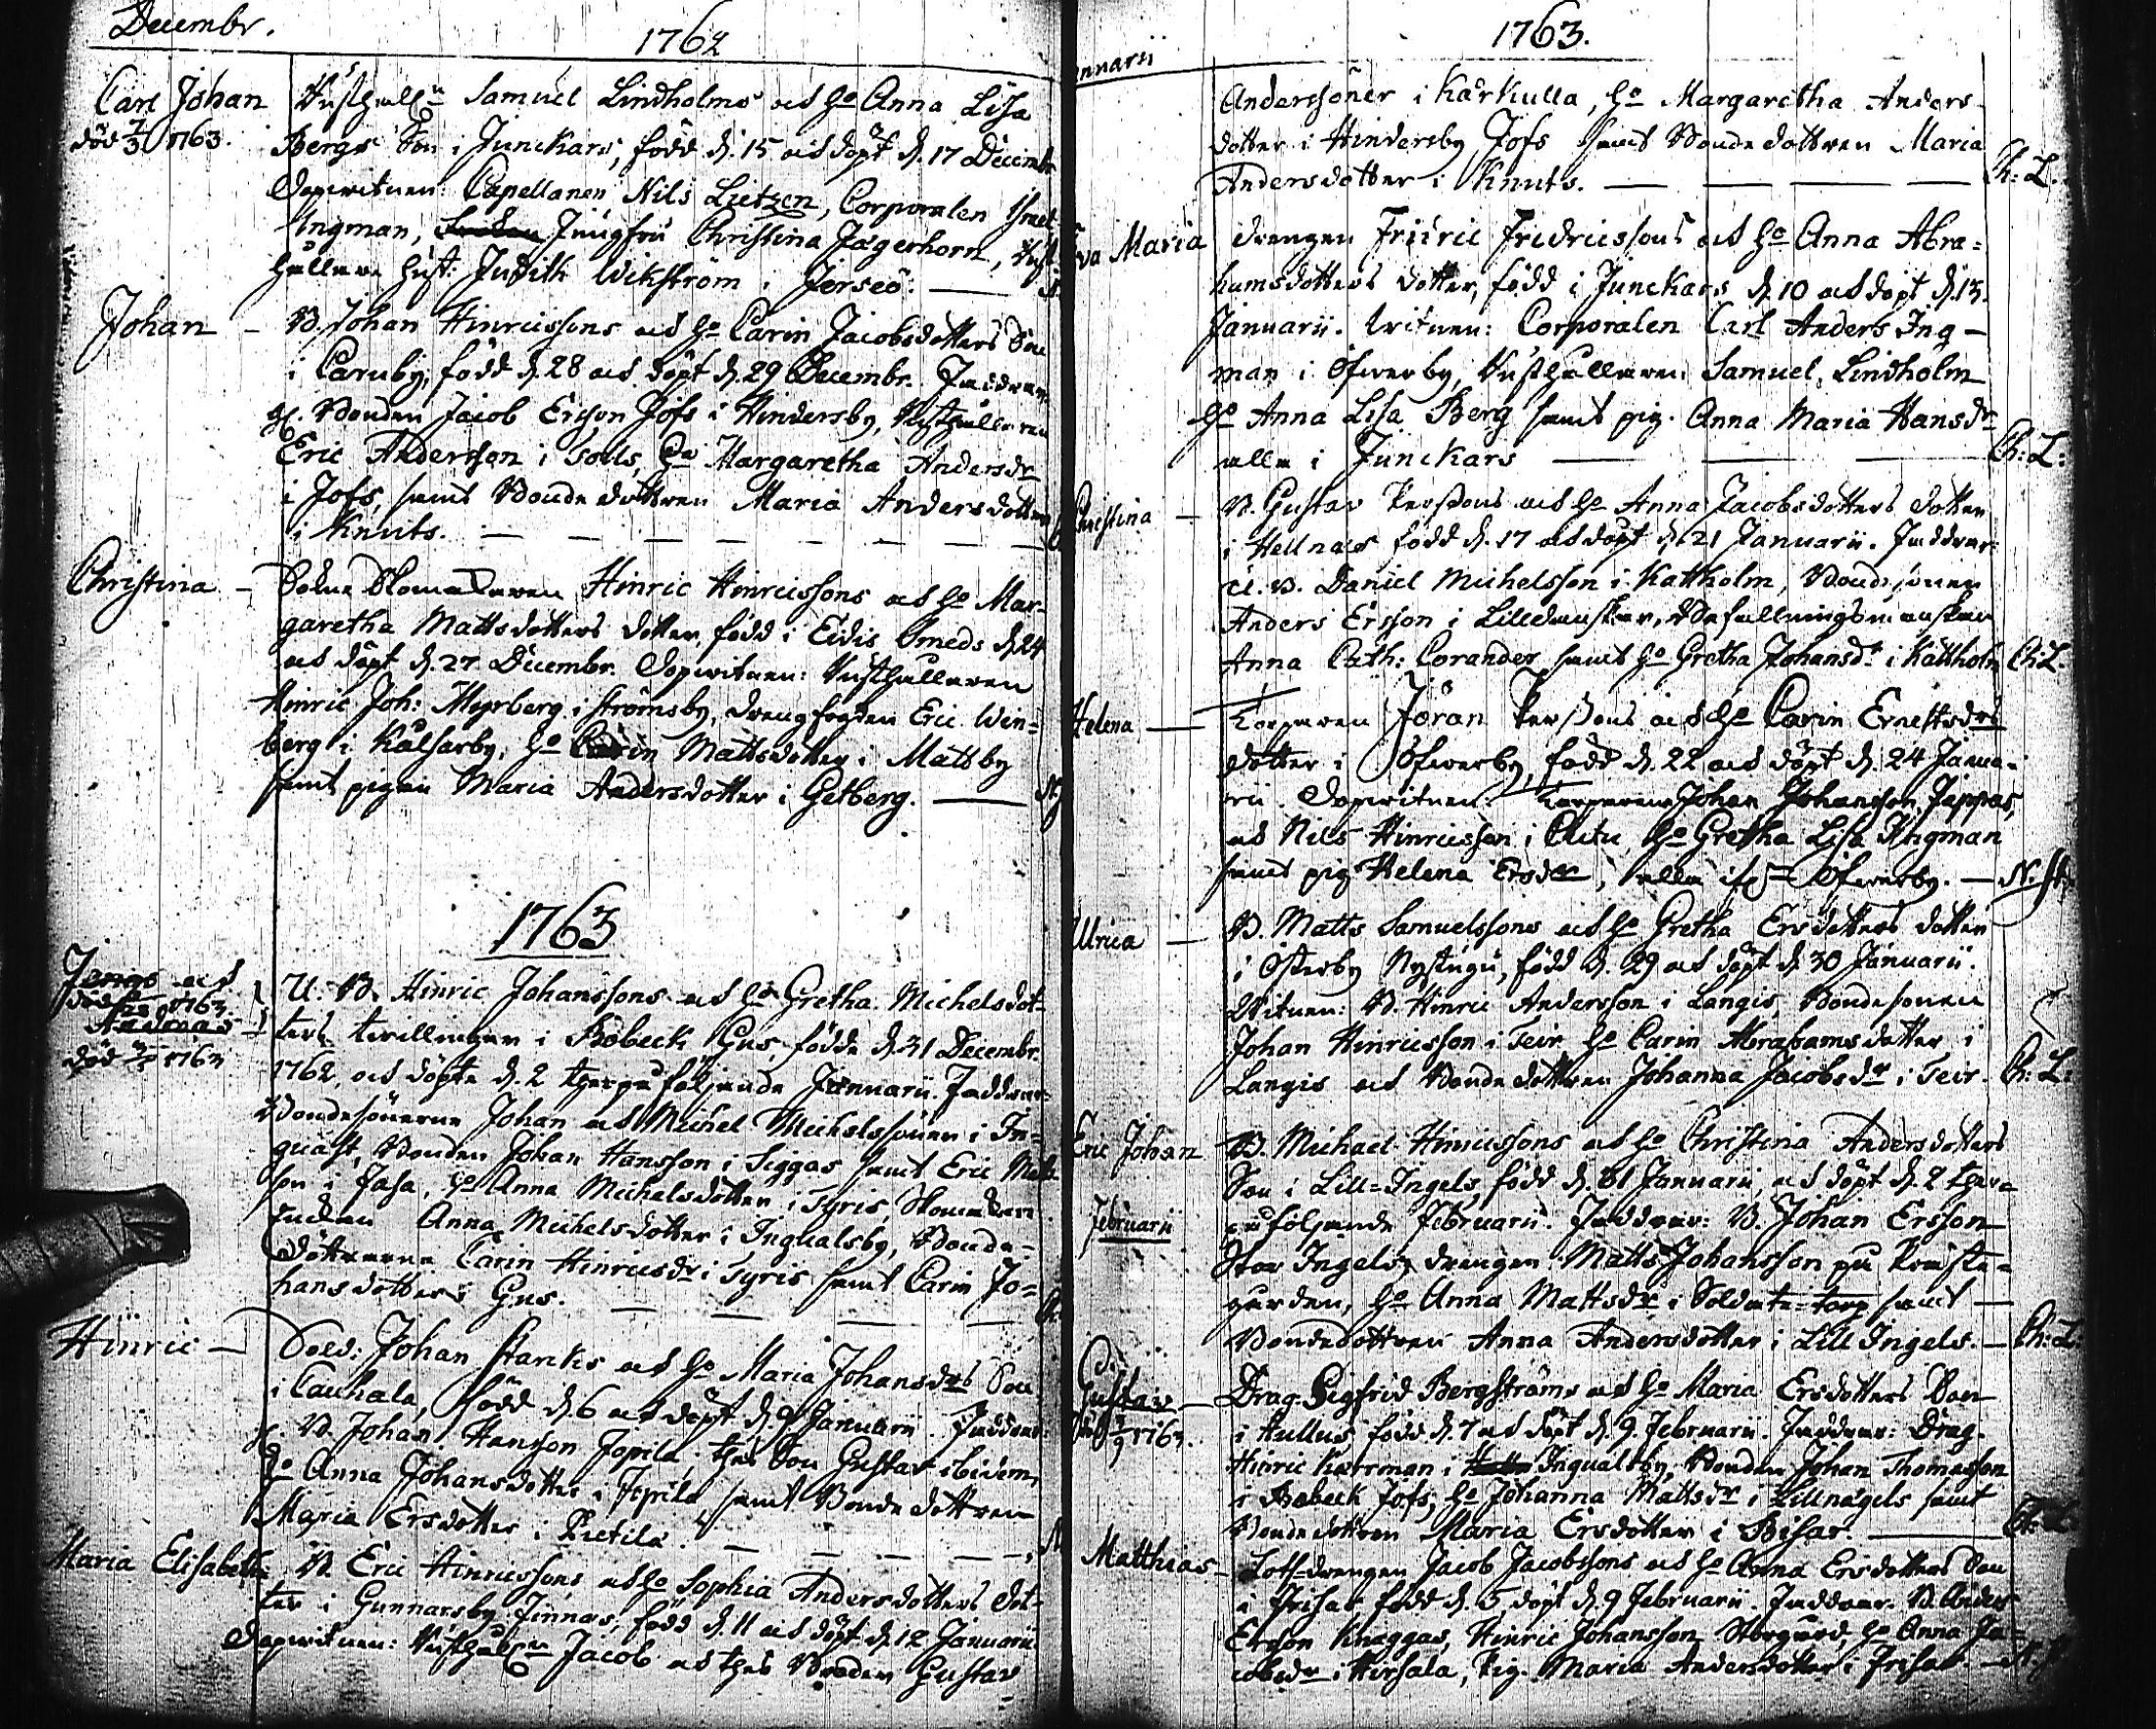 Decembr.
1762
Carl Johan
död 7/3 1763.
Rusthåll:n Samuel Lindholms och H:o Anna Lisa
Bergs Son i Junckars, född d. 15 och döpt d. 17 Decembr
Dopwitnen: Capellanen Nils Lietzen, Corporalen
Ingman, Jungfru Christina Jägerhorn, Rust
hållare hust: Judith Wikström i Jorseö.
Johan
B. Johan Hinricssons och H:o Carin Jacobsdotters Son
i Caruby, född d. 28 och döpt d. 29 Decembr. Faddrar
Bonden Jacob Ersson Jofs i Hindersby, Rusthållaren
Eric Andersson i Sools, H:o Margaretha Andersdr
i Jofs, samt Bonde dottren Maria Andersdotter
i Knuts.
Christina
Hinric Hinricssons och H:o Mar-
garetha Mattsdotters dotter, född i Eidis Smeds d. 24
och döpt d. 27 Decembr. Dopwitnen: Rusthållaren
Hinric Joh: Myrberg i Strömsby, drengfogden Eric Win-
berg i Kålsarby, H:o Carin Mattsdotter i Mattsby
samt pigan Maria Andersdotter i Getberg.
1763
Jonas och
död 1763
Andreas
död 1763
U. B. Hinric Johanssons och H:o Gretha Michelsdot-
ters twillingar i Bobeck Gus, födde d. 31 Decembr.
1762, och döpte d. 2 therpå följande Januarii. Faddrar:
Bondesönerne Johan och Michel Michelssöner i In-
gvalst, Bonden Johan Hansson i Siggas samt Eric Matts
son i Jasa, H:o Anna Michelsdotter i Tyris,
Anna Michelsdotter i Ingvalsby, Bonde-
döttrarne Carin Hinricsdr i Tyris samt Carin Jo-
hansdotter i Gus.
Hinric
Sold: Johan Starcks och H:o Maria Johansdrs Son
i Cauhala, född d. 6 och döpt d. 9 Januarii. Faddrar:
B. Johan Hansson Jopila, thes Son Gustav ibidem,
H:o Anna Johansdotter i Jopila samt Bonde dottren
Maria Ersdotter i Pietila.
Maria Elisabeth
B. Eric Hinricssons och H:o Sophia Andersdotters dot-
ter i Gunnarsby Finnas, född d. 11 och döpt d. 12 Januarii
Dopwitnen: Rusthåll:n Jacob och thes Broder Gustav
1763.
Januarii
Anderssöner i Kårkulla, H:o Margaretha Anders-
dotter i Hindersby Jofs samt Bondedottren Maria
Andersdotter i Knuts. Ch: L.
Eva Maria
drengen Fridric Fridricssons och H:o Anna Abra-
hamsdotters dotter, född i Junckars d. 10 och döpt d. 13.
Januarii. Witnen: Corporalen Carl Anders Ing-
man i Öfwerby, Rusthållaren Samuel Lindholm
H:o Anna Lisa Berg samt pig. Anna Maria Hansdr
alla i Junckars Ch: L:
Christina
B. Gustav Perssons och H:o Anna Jacobsdotters dotter
i Hellnäs född d. 17 och döpt d. 21 Januarii. Faddrar:
U. B. Daniel Michelsson i Kattholm, Bondesonen
Anders Ersson i Lilldansker, Befallningsmanskan
Anna Cath: Corander samt H:o Gretha Johansdr i Kattholm Ch: L.
Helena
Torparen Jöran Perssons och H:o Carin Ernstsdrs
dotter i Öfwerby, född d. 22 och döpt d. 24 Janua-
rii. Dopwitnen: Torparena Johan Johansson Jeppas,
och Nils Hinricsson i , H:o Gretha Lisa Ingman
samt pig Helena Ersdr, alla ifr:n Öfwerby. N. St.
Ulrica
B. Matts Samuelssons och H:o Gretha Ersdotters dotter
i Österby Nystugu, född d. 29 och döpt d. 30 Januarii.
Witnen: B. Hinric Andersson i Langis, Bondesonen
Johan Hinricsson i Teir, H:o Carin Abrahamsdotter i
Langis och Bonde dottren Johanna Jacobsdr i Teir. Ch: L:
Eric Johan
Februarii
B. Michael Hinricssons och H:o Christina Andersdotters
Son i Lill-Ingels, född d. 31 Januarii, och döpt d. 2 ther-
på följande Februarii. Faddrar: B. Johan Ersson
Stor Ingels, drengen Matts Johansson på Präste-
gården, H:o Anna Mattsdr i Soldate-torp samt
Bondedottren Anna Andersdotter i Lill Ingels. Ch: L.
Gustav
död 3/9 1763.
Drag. Sigfrid Bergströms och H:o Maria Ersdotters Son
i Hullus född d. 7 och döpt d. 9. Februarii. Faddrar: Drag.
Hinric Karrman i Ingvalsby, Bonden Johan Thomasson
i Bobeck Jofs, H:o Johanna Mattsdr i Lillnägels samt
Bondedottren Maria Ersdotter i Bisas. Ch: L.
Matthias
Lots-drengen Jacob Jacobssons och H:o Anna Ersdotters Son
i Prisas född d. 5 döpt d. 9 Februarii. Faddrar. B. Anders
Ersson Knaggas, Hinric Johansson Storgård, H:o Anna Ja-
cobsdr i Hirsala, Pig. Maria Andersdotter i Prisas.